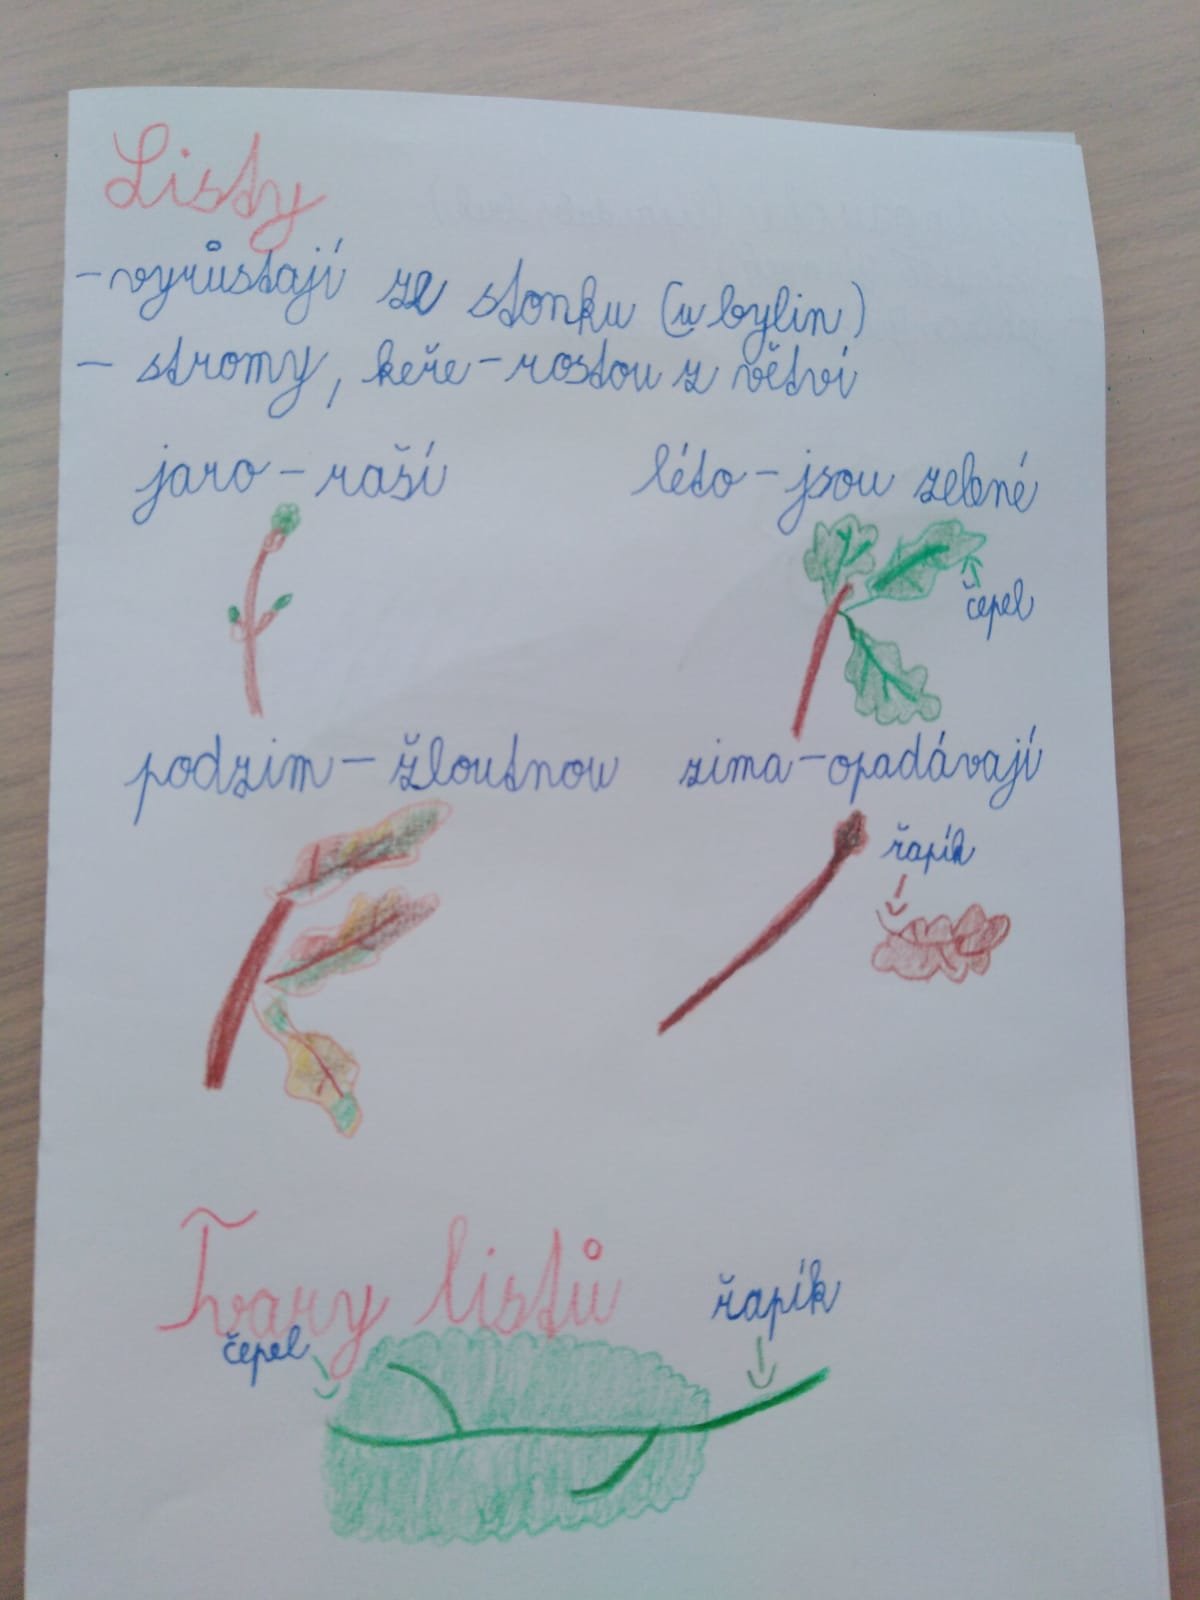 Listy
- vyrůstají ze stonku (u bylin)
- stromy, keře - rostou z větví
jaro - raší
léto - jsou zelené
čepel
podzim - žloutnou
zima - opadávají
řapík
Tvary listů
čepel
řapík